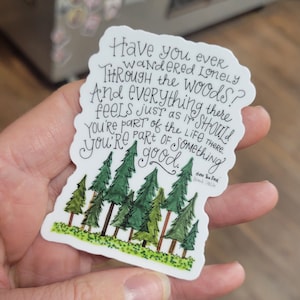 Have you ever
wandered lonely
through the woods?
And everything there
feels just as it should
You're part of the life there
you're part of something
good.